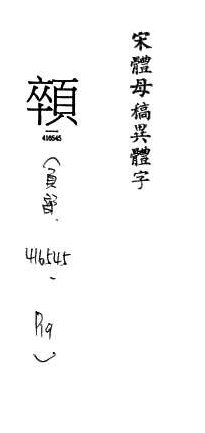 宋體母稿異體字
顇
416545
(頁部.
416545
-
P19)